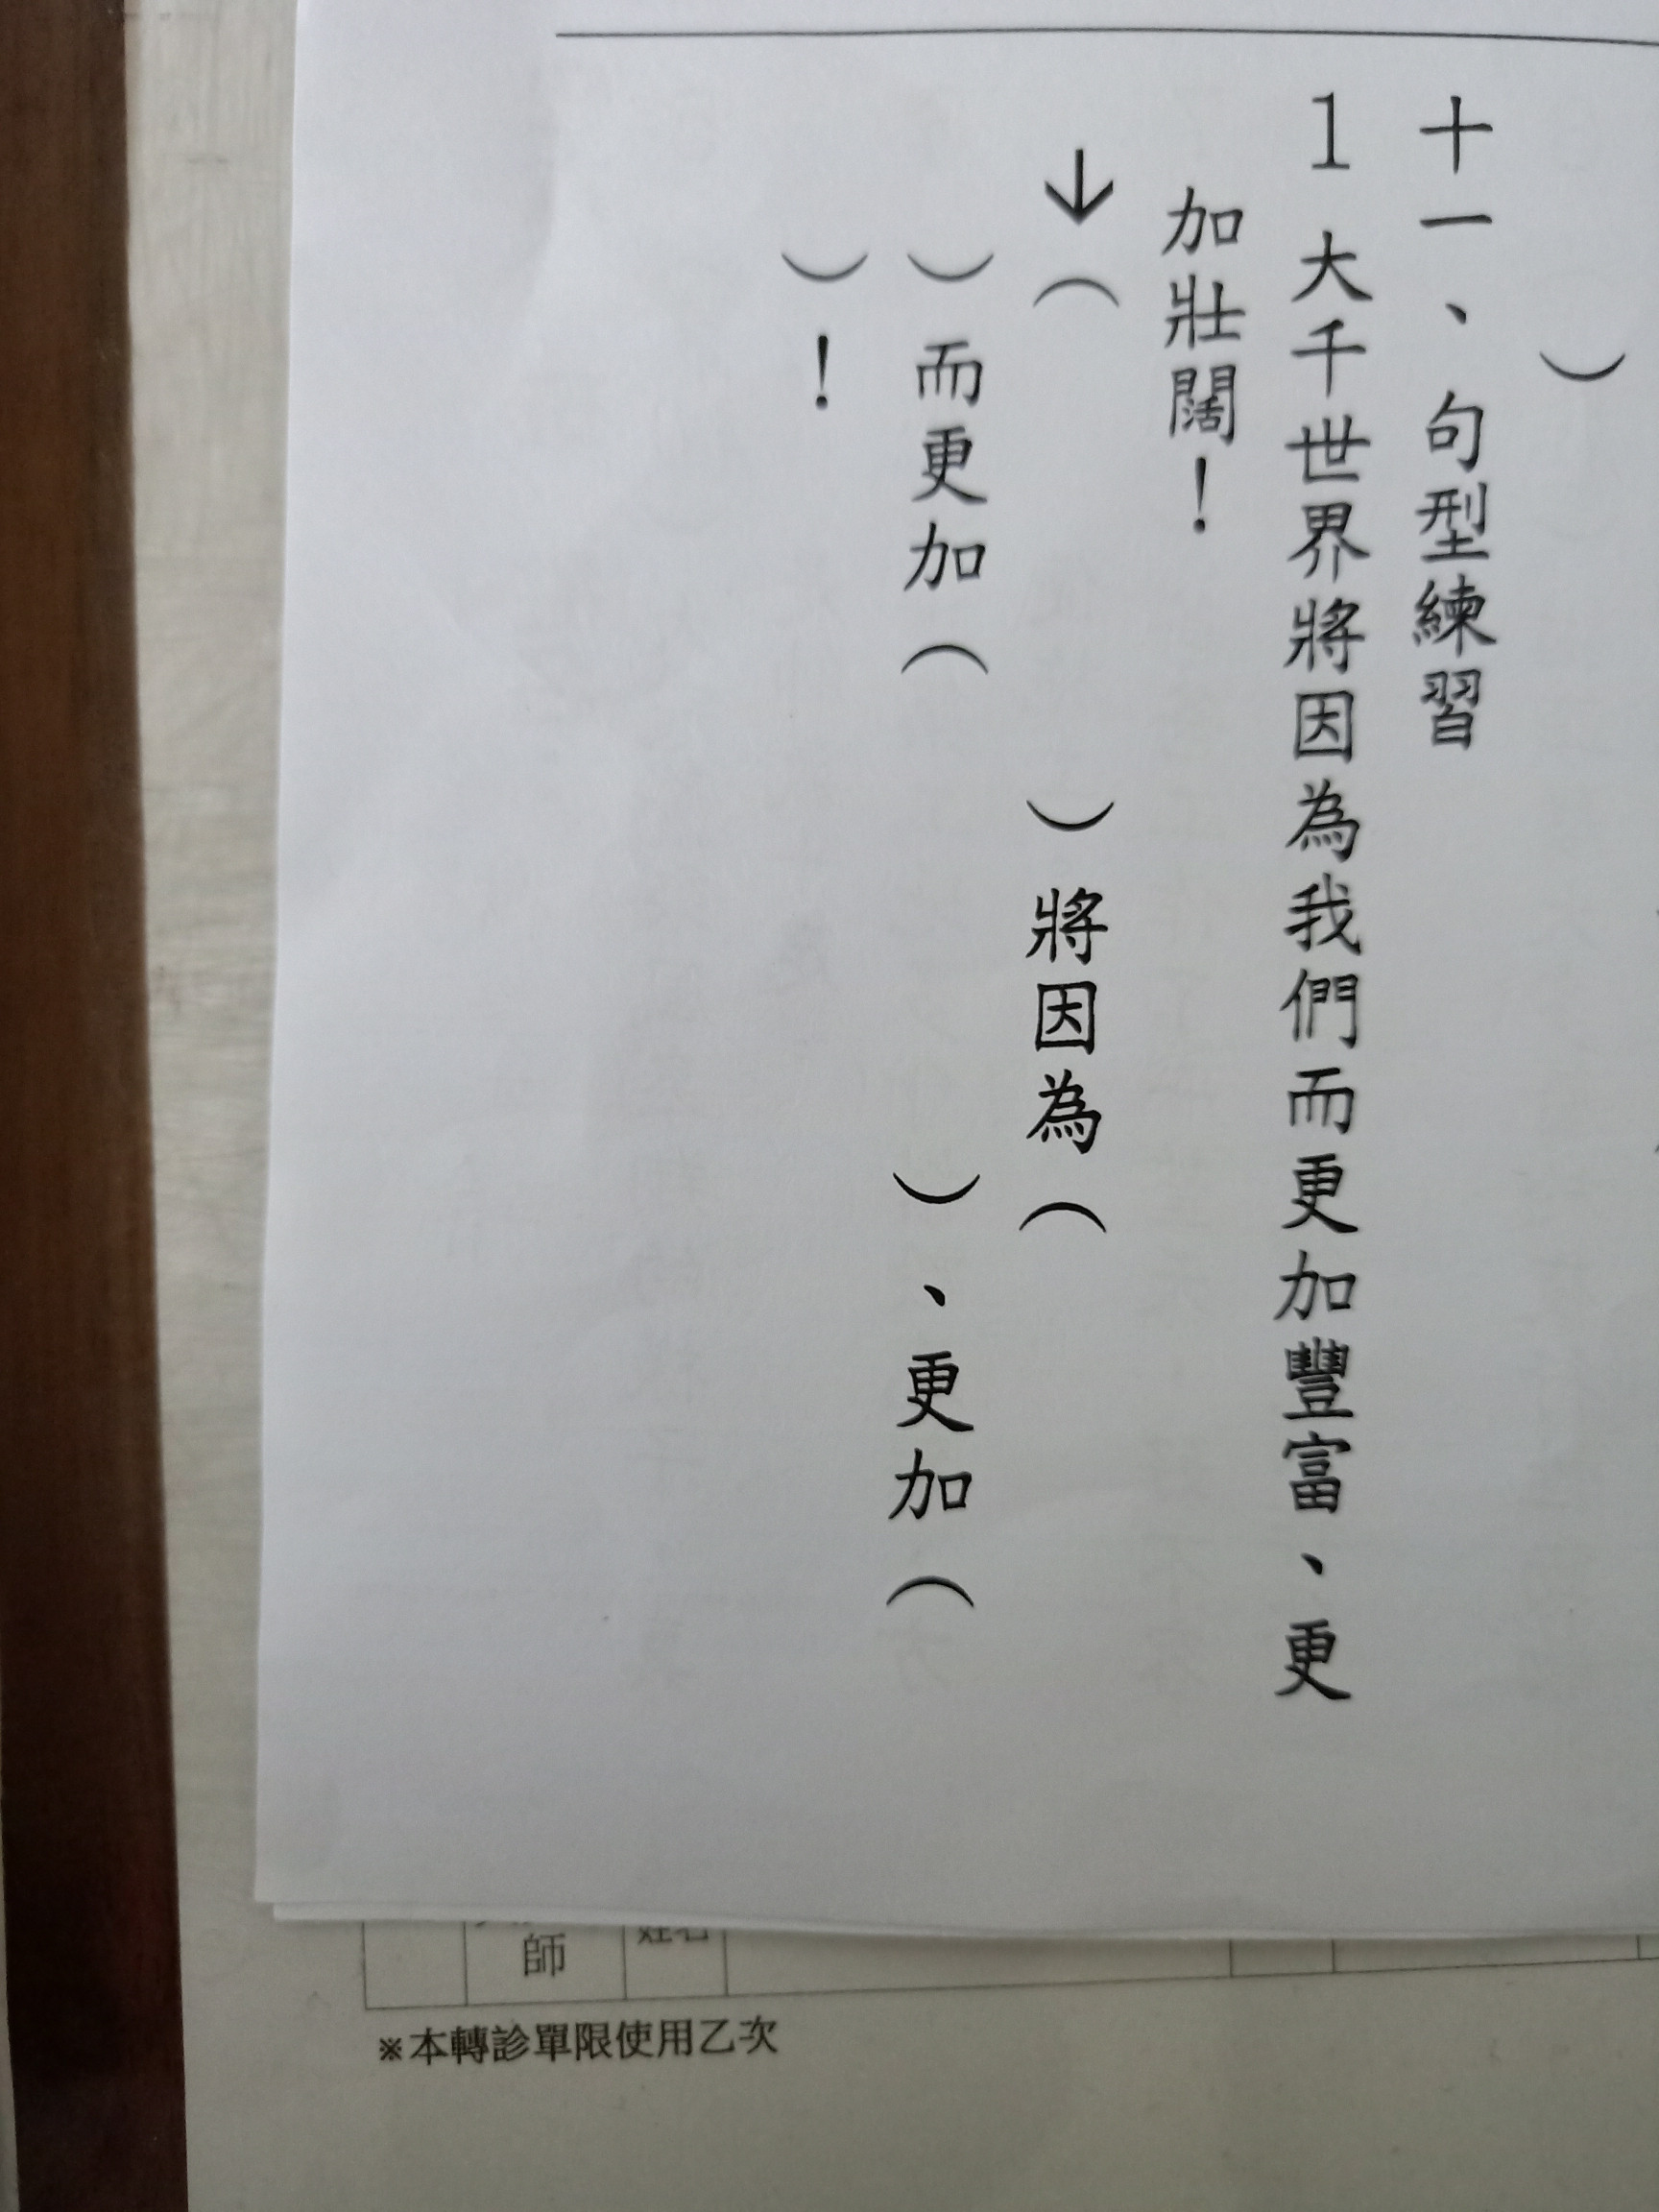 ）
十一、句型練習
1 大千世界將因為我們而更加豐富、更
加壯闊！
→（　　　　　）將因為（
）而更加（　　　　　）、更加（
）！
師
姓名
※本轉診單限使用乙次